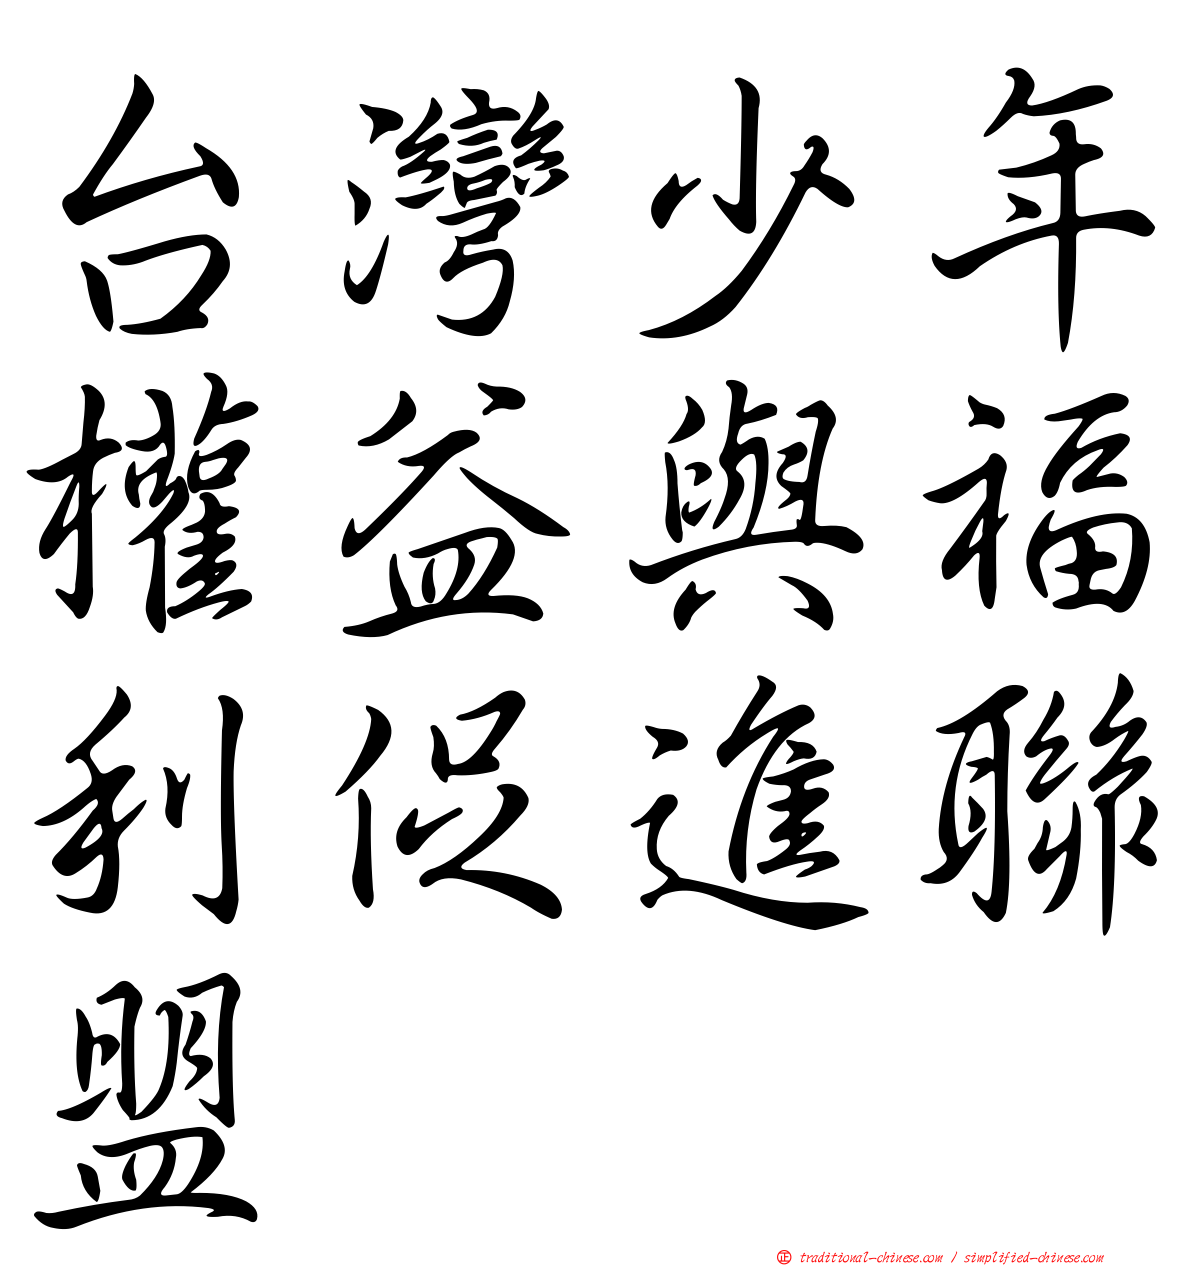 台灣少年
權益與福
利促進聯
盟
㊣ traditional-chinese.com / simplified-chinese.com